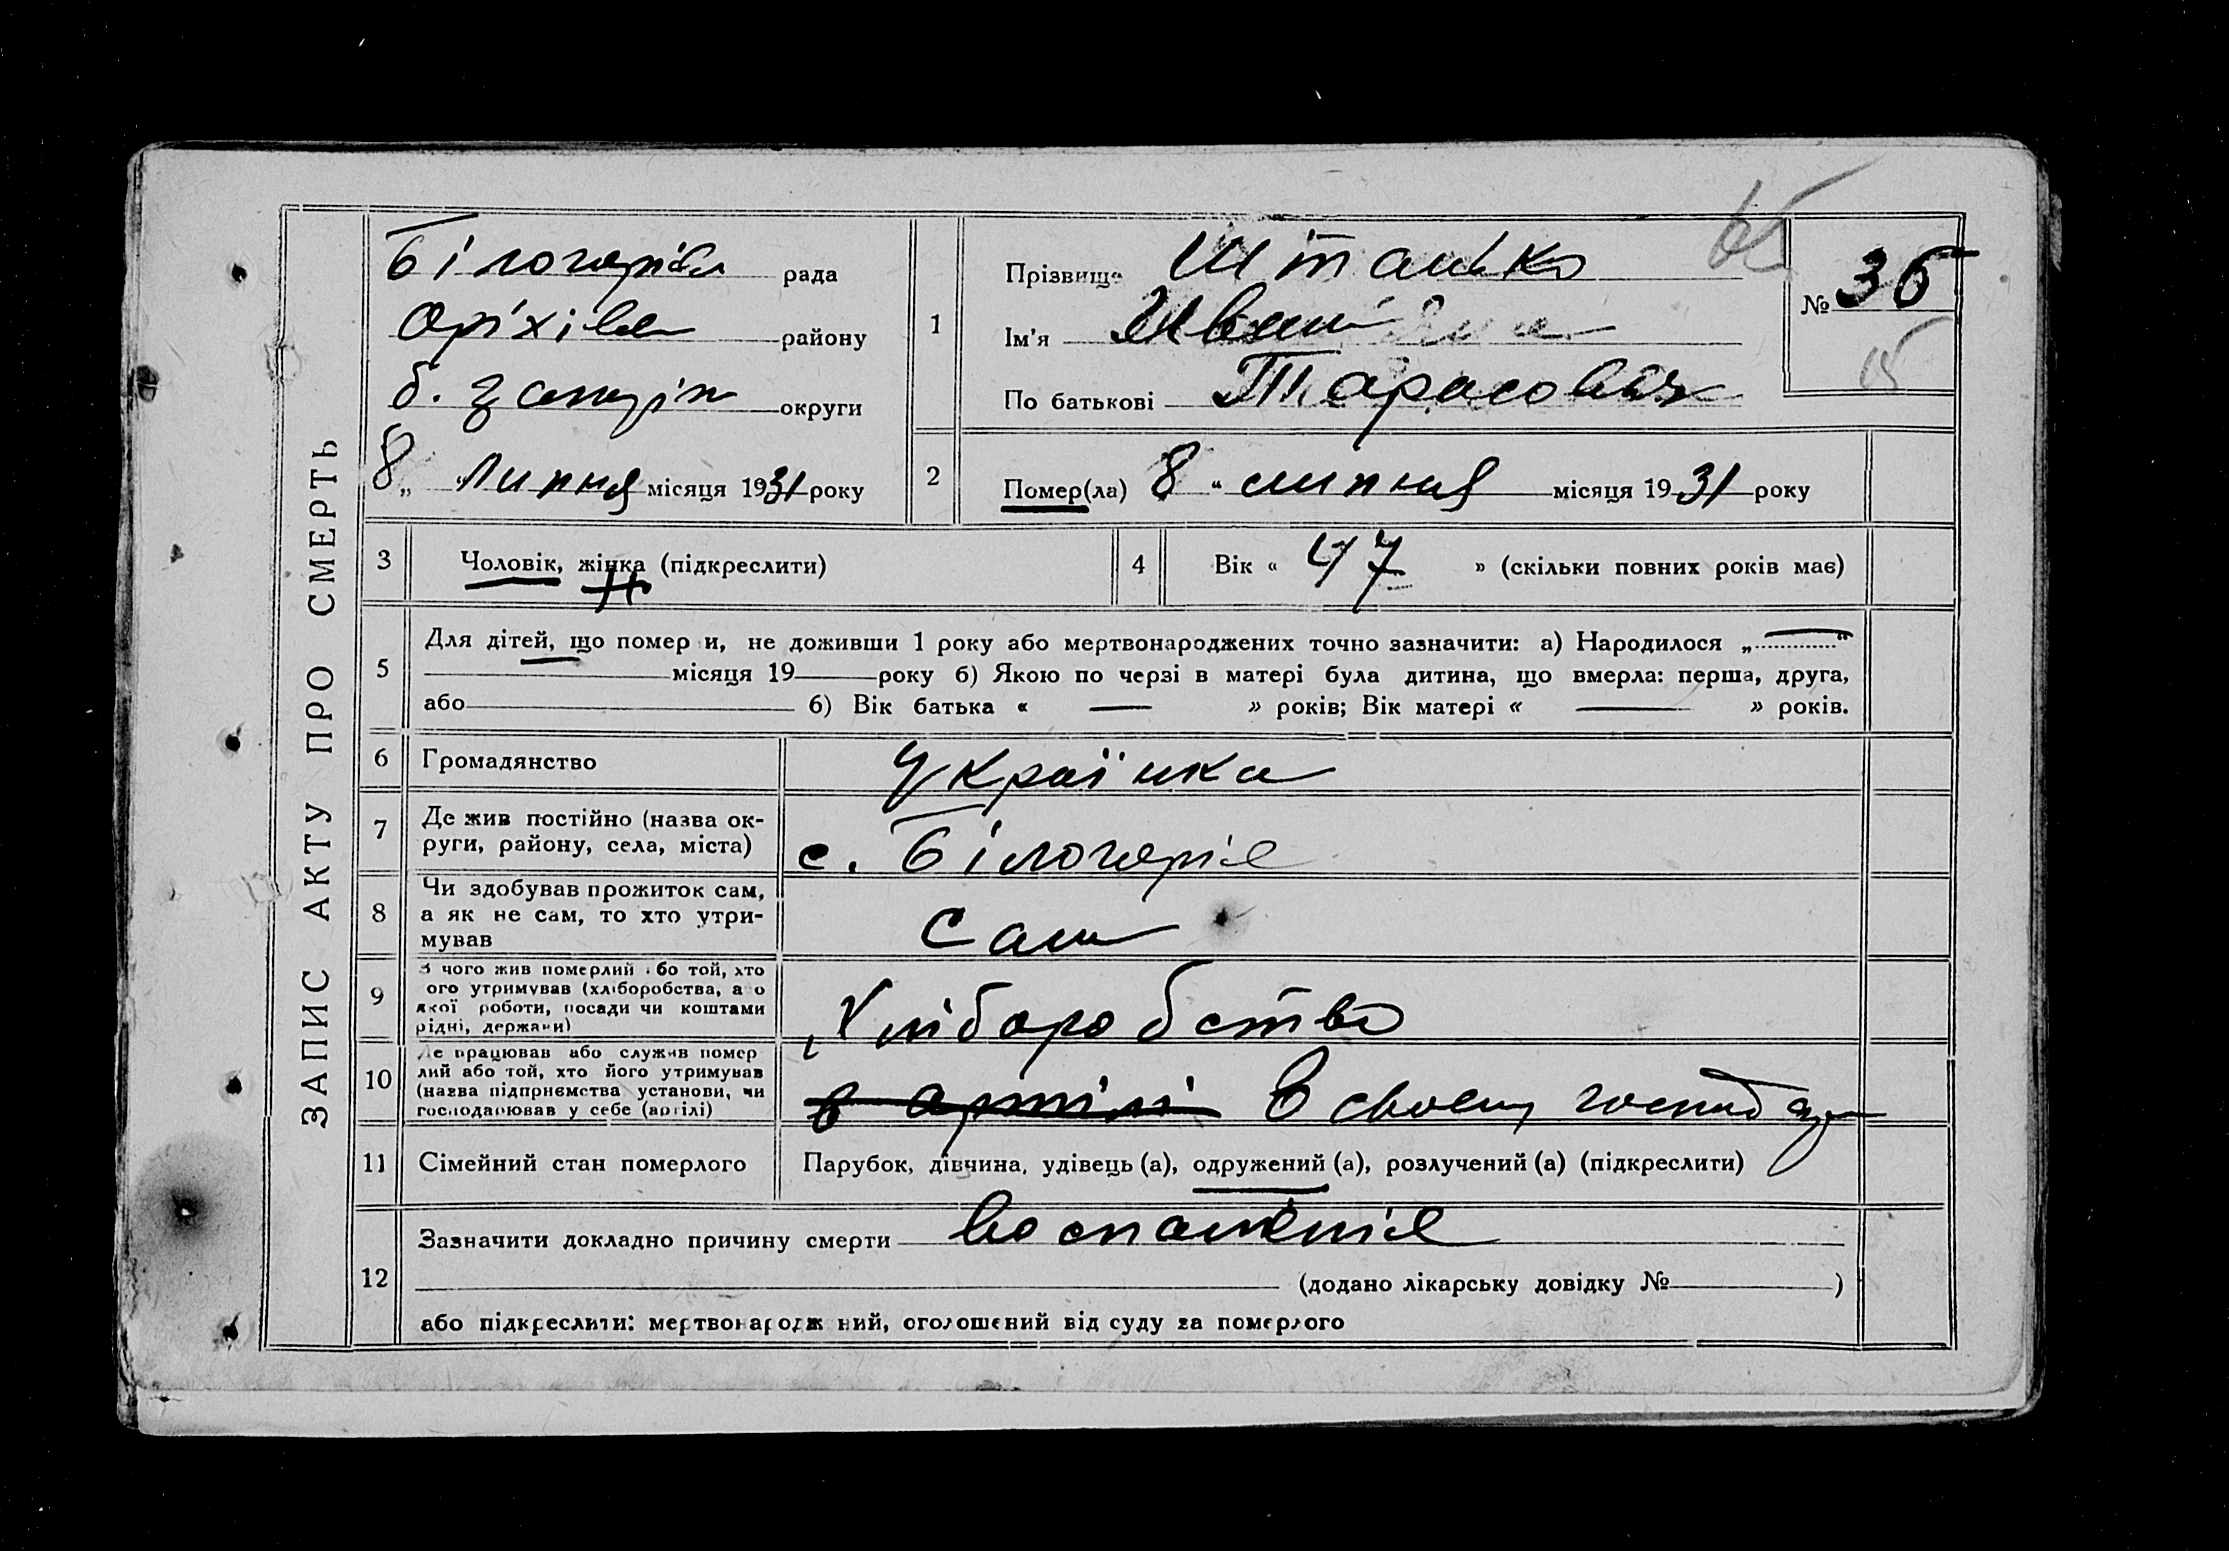 ЗАПИС АКТУ ПРО СМЕРТЬ
Білогірівс рада
Оріхівс району
б. запоріж округи
8 „ “ липня місяця 1931 року
1
Прізвище Штанько
Ім'я Иван
По батькові Тарасович
№ 35
2
Помер(ла) 8 “ липня місяця 1931 року
3
Чоловік, жінка (підкреслити)
4
Вік « 47 » (скільки повних років має)
5
Для дітей, що помер и, не доживши 1 року або мертвонароджених точно зазначити: а) Народилося „ — “
місяця 19 року б) Якою по черзі в матері була дитина, що вмерла: перша, друга,
або б) Вік батька « — » років; Вік матері « — » років.
6
Громадянство
українка
7
Де жив постійно (назва ок-
руги, району, села, міста)
с. Білогоріе
8
Чи здобував прожиток сам,
а як не сам, то хто утри-
мував
Сам
9
З чого жив померлий або той, хто
ого утримував (хліборобства, а о
якої роботи, посади чи коштами
рідні, держави)
Хліборобство
10
Де працював або служив помер
лий або той, хто його утримував
(назва підприємства установи, чи
господарював у себе (артілі)
в артілі В своєму господар
11
Сімейний стан померлого
Парубок, дівчина, удівець (а), одружений (а), розлучений (а) (підкреслити)
12
Зазначити докладно причину смерти воспаленіе
(додано лікарську довідку № )
або підкреслити: мертвонародж ний, оголошений від суду за померлого